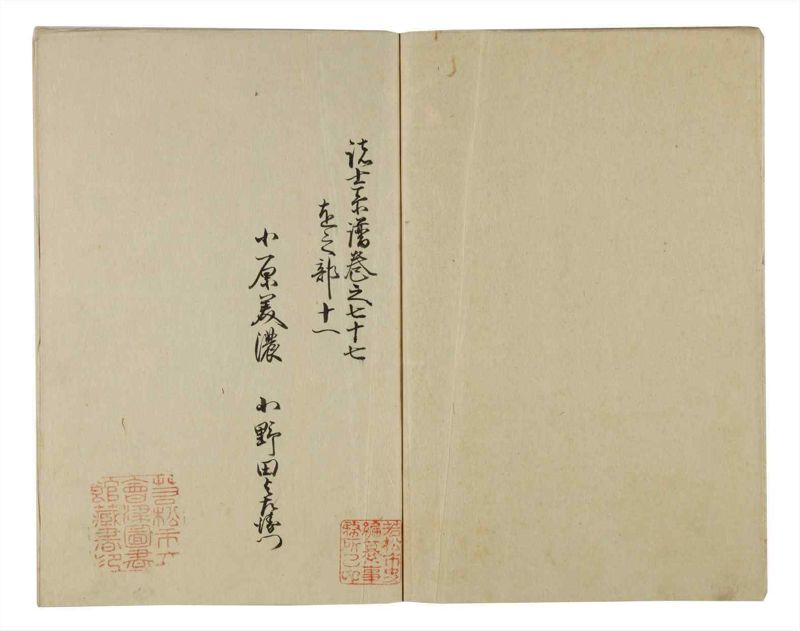 諸士系譜巻之七十七
越之部十一
小原美濃　小野田与左衛門
若松市史
編纂事
務所之印
若松市立
會津圖書
館藏書印